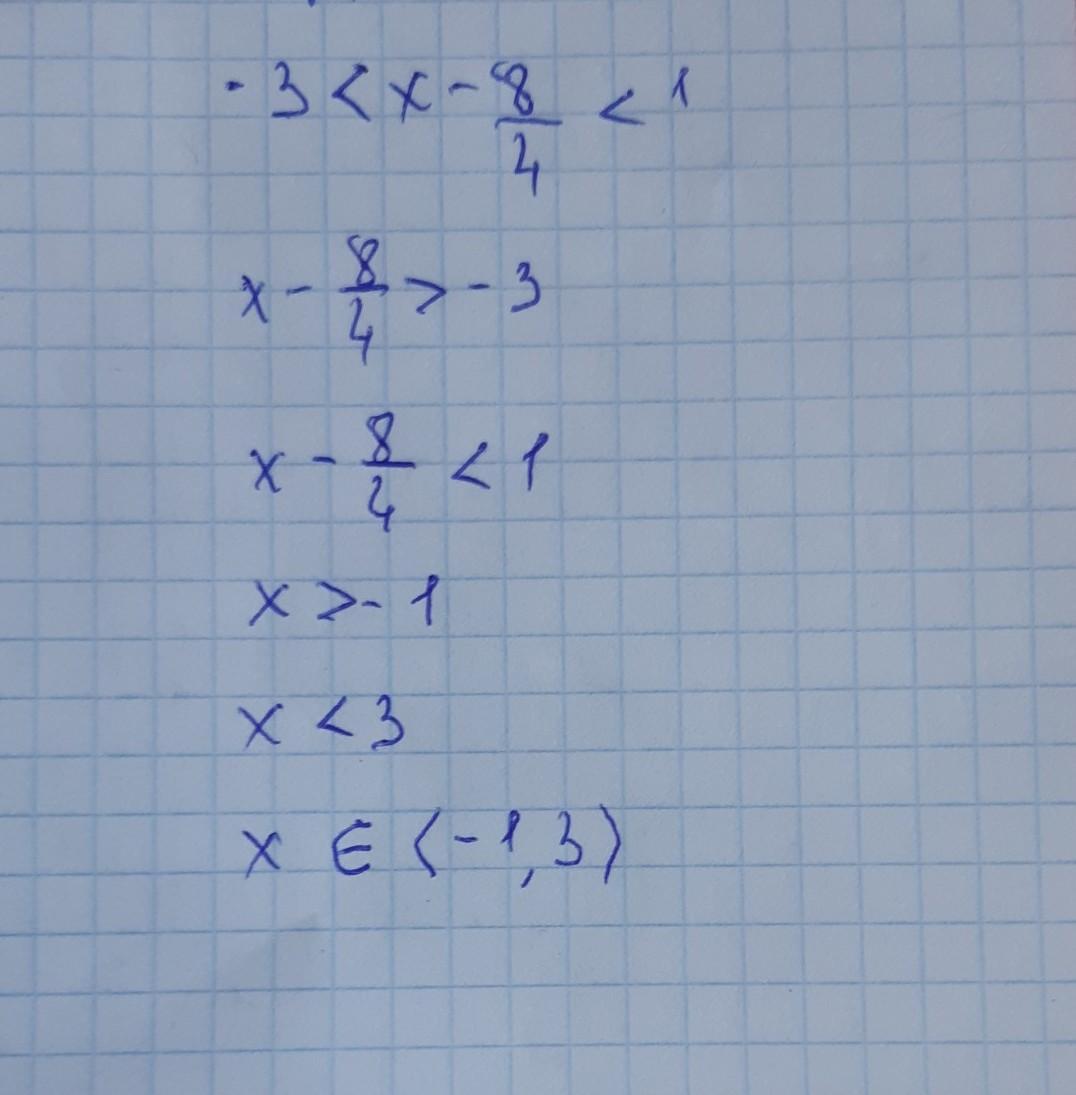 -3 < x - 8/4 < 1
x - 8/4 > -3
x - 8/4 < 1
x > -1
x < 3
x ∈ (-1,3)